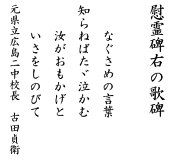 慰霊碑右の歌碑
なぐさめの言葉
知らねばたゞ泣かむ
汝がおもかげと
いさをしのびて
元県立広島二中校長　古田貞衛